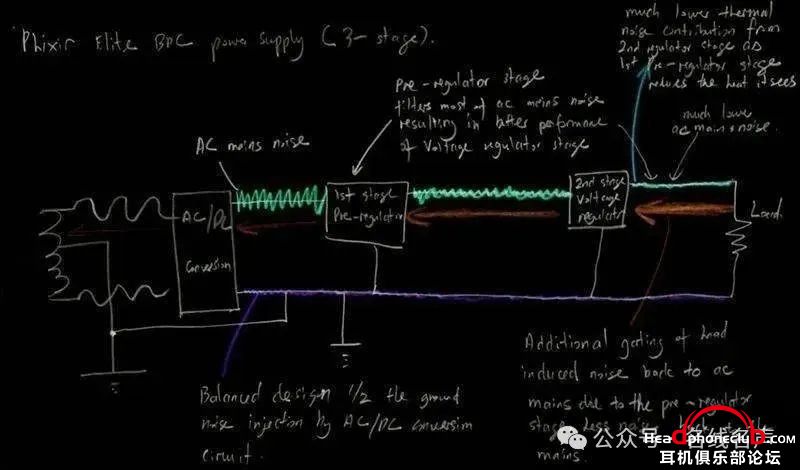 Phixir Elite BPC power supply (3-stage).
much lower thermal
noise contribution from
2nd regulator stage as
1st Pre-regulator stage
reduces the heat it sees
Pre-regulator stage
filters most of ac mains noise
resulting in better performance
of voltage regulator stage
much lower
ac mains noise.
AC mains noise
AC/DC
conversion
1st stage
Pre-regulator
2nd stage
voltage
regulator
Load.
Balanced design 1/2 the ground
noise injection by AC/DC conversion
circuit.
Additional gating of load
induced noise back to ac
mains due to the pre-regulator
stage. Less noise
mains.
公众号
Headphoneclub.com
耳机俱乐部论坛